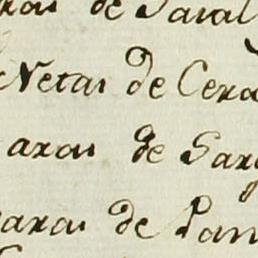 de Saval
Netas de Cera
aras de Sar
aras de Pan